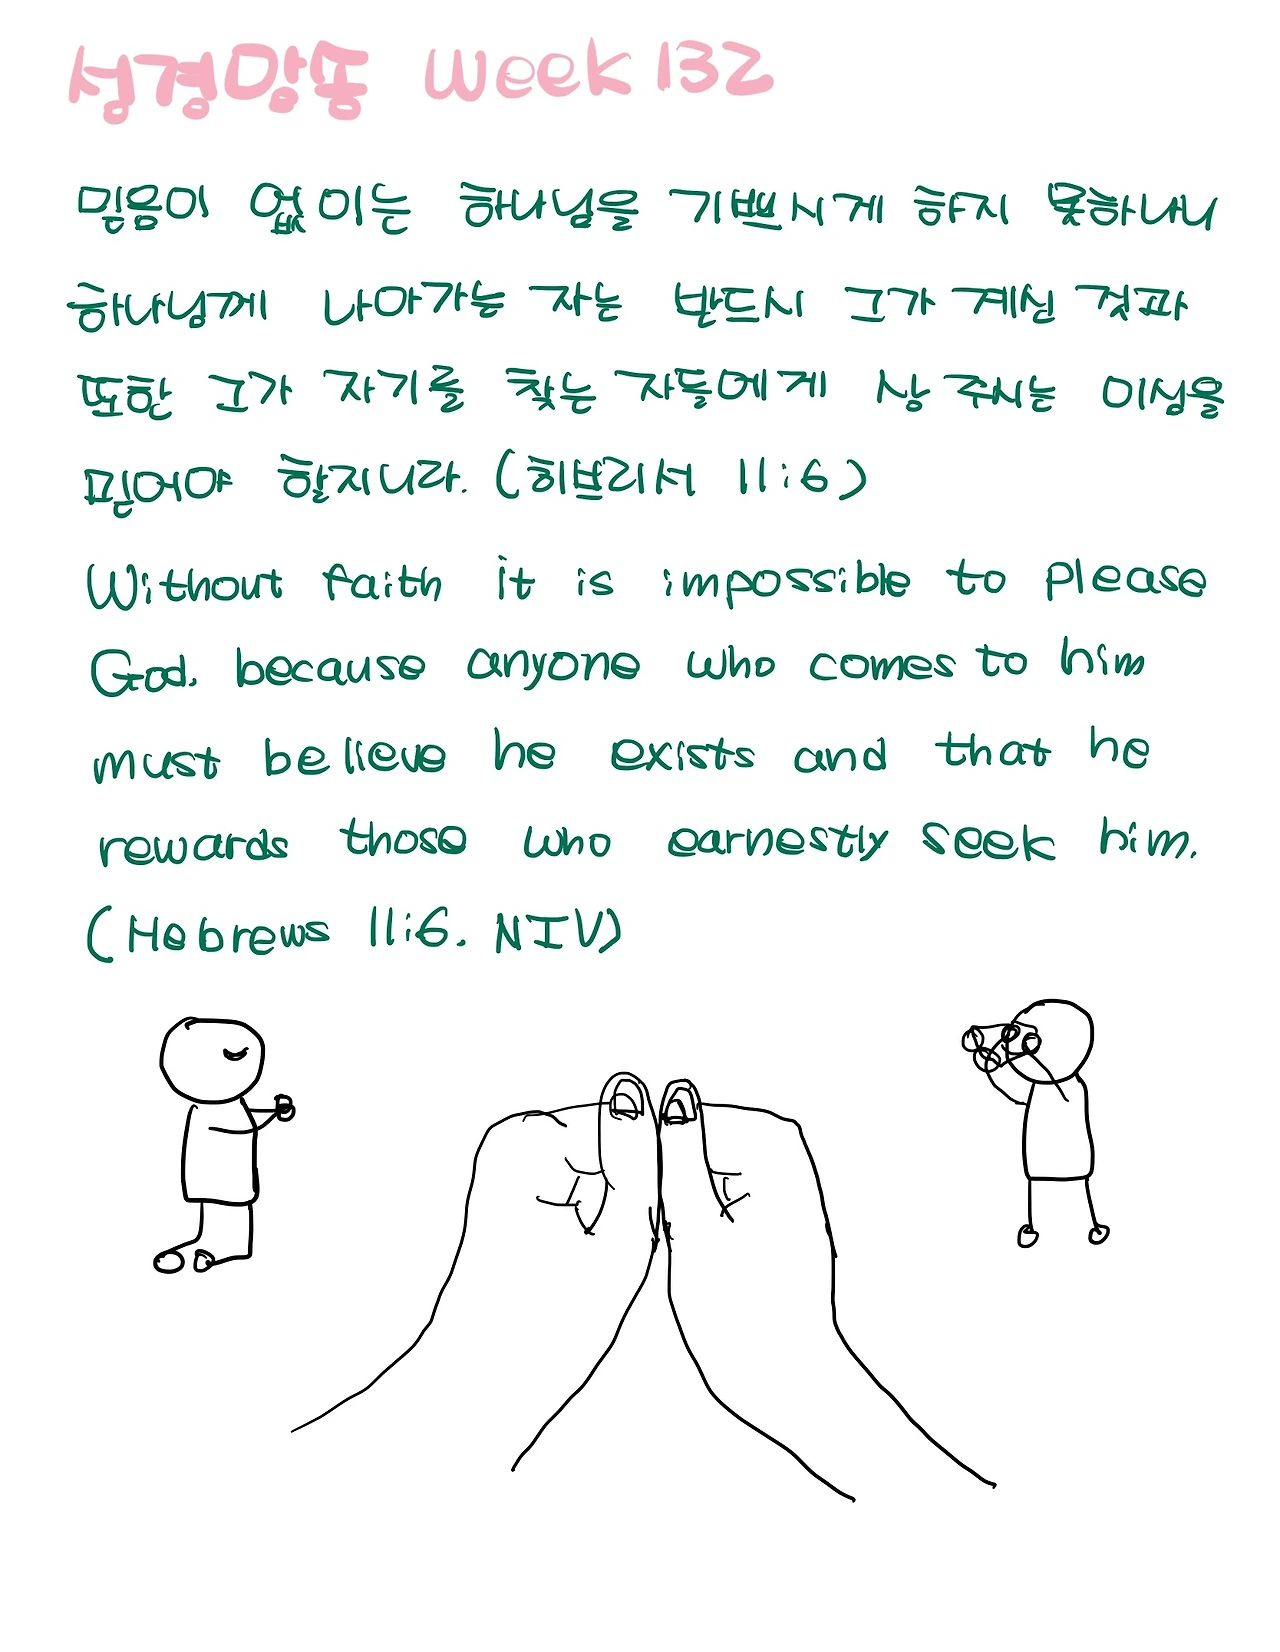 성경암송 Week 132
믿음이 없이는 하나님을 기쁘시게 하지 못하나니
하나님께 나아가는 자는 반드시 그가 계신 것과
또한 그가 자기를 찾는 자들에게 상 주시는 이심을
믿어야 할지니라. (히브리서 11:6)
Without faith it is impossible to please
God, because anyone who comes to him
must believe he exists and that he
rewards those who earnestly seek him.
(Hebrews 11:6. NIV)